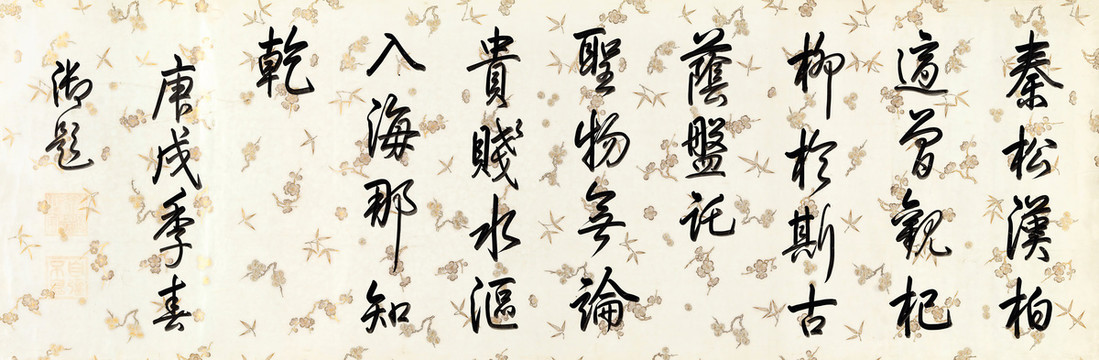 秦松漢柏
適曽觀杞
柳於斯古
蔭盤託
聖物無論
貴賤水漚
入海那知
乾
庚戌季春
御題